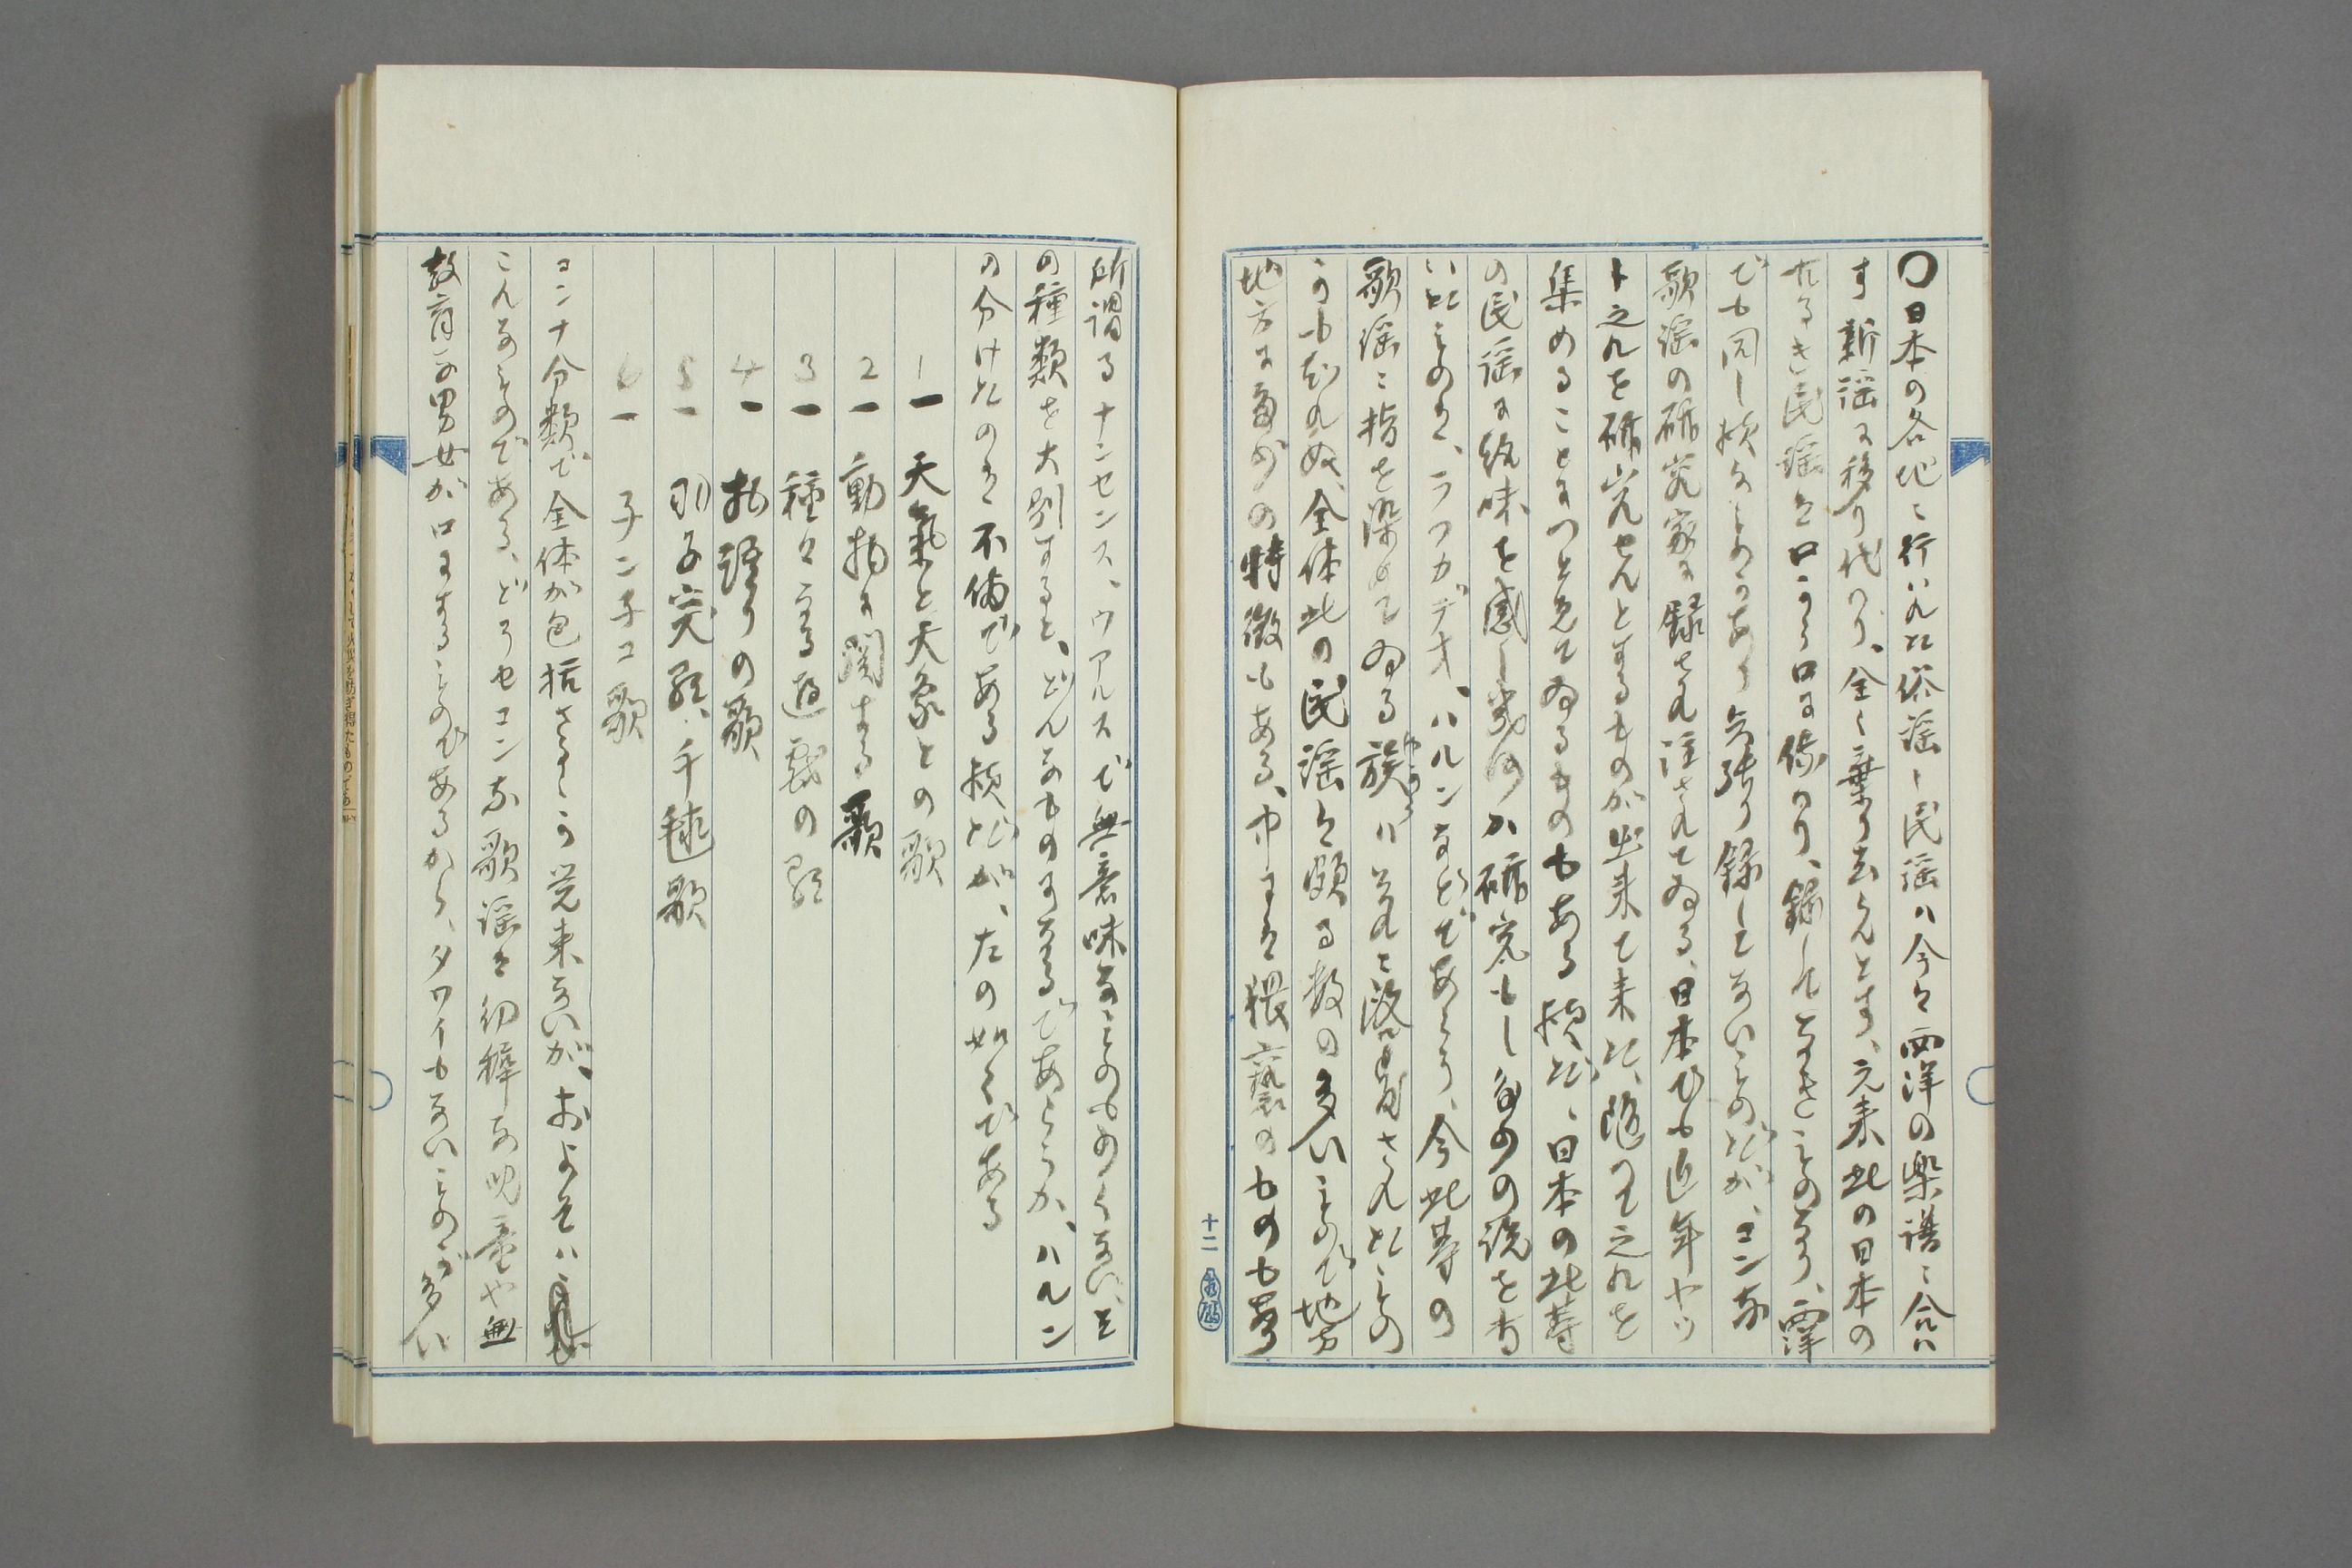 〇日本の各地に行ハれた俗謡や民謡ハ今や西洋の楽譜に合ハ
す新謡に移り代り、全く棄り去らんとす、元来此の日本の
古るき民謡は口から口に傳わり、録してなきものなり、西洋
でも同し様なものであり矢張り録してないものだが、コンな
歌謡の研究家に録され注されてゐる、日本でも近年ヤツ
ト之れを研究せんとするものが出来て来た、随つて之れを
集めることにつとめてゐるものもある様だ、日本の此等
の民謡に趣味を感し幾何か研究もし多少の説を書
いたものは、ラフカデオ、ハルンなどであらう、今此等の
歌謡に指を染めてゐる族ハそれに啓発されたもの
かも知れぬ、全体此の民謡は頗る数の多いもので地方
地方に多少の特徴もある、中には猥褻のものも多く
十二
所謂るナンセンス、ウアルスで無意味なものも少くない、そ
の種類を大別すると、どんなものになるであらうか、ハルン
の分けたのは不備である様だが、左の如くである
1一 天氣と天象との歌
2一 動物に関する歌
3一 種々なる遊戯の歌
4一 物語りの歌
5一 羽子突歌、手毬歌
6一 子ンネコ歌
コンナ分類で全体が包括さるゝか覚束ないが、およそハ
こんなものである、どうセコンな歌謡は幼稚な児童や無
教育な男女が口にするものであるから、タワイもないものが多い